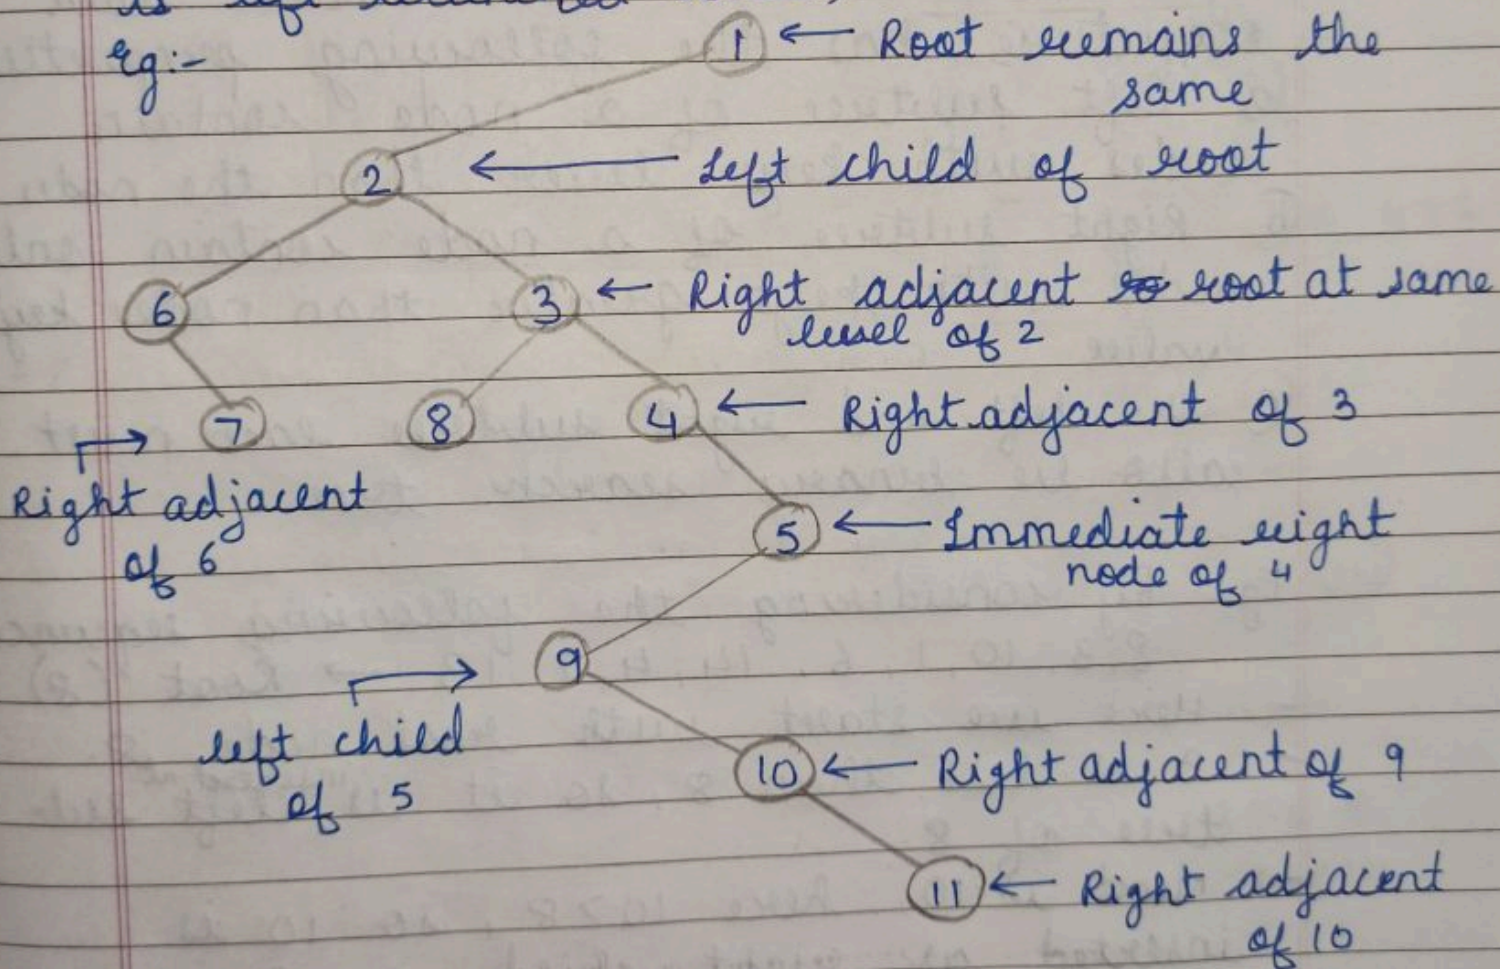 is left
Eg:-
1 ← Root remains the
same
2 ← Left child of root
6 3 ← Right adjacent root at same
level of 2
7 8 4 ← Right adjacent of 3
Right adjacent
of 6
5 ← Immediate right
node of 4
9
left child
of 5
10 ← Right adjacent of 9
11 ← Right adjacent
of 10